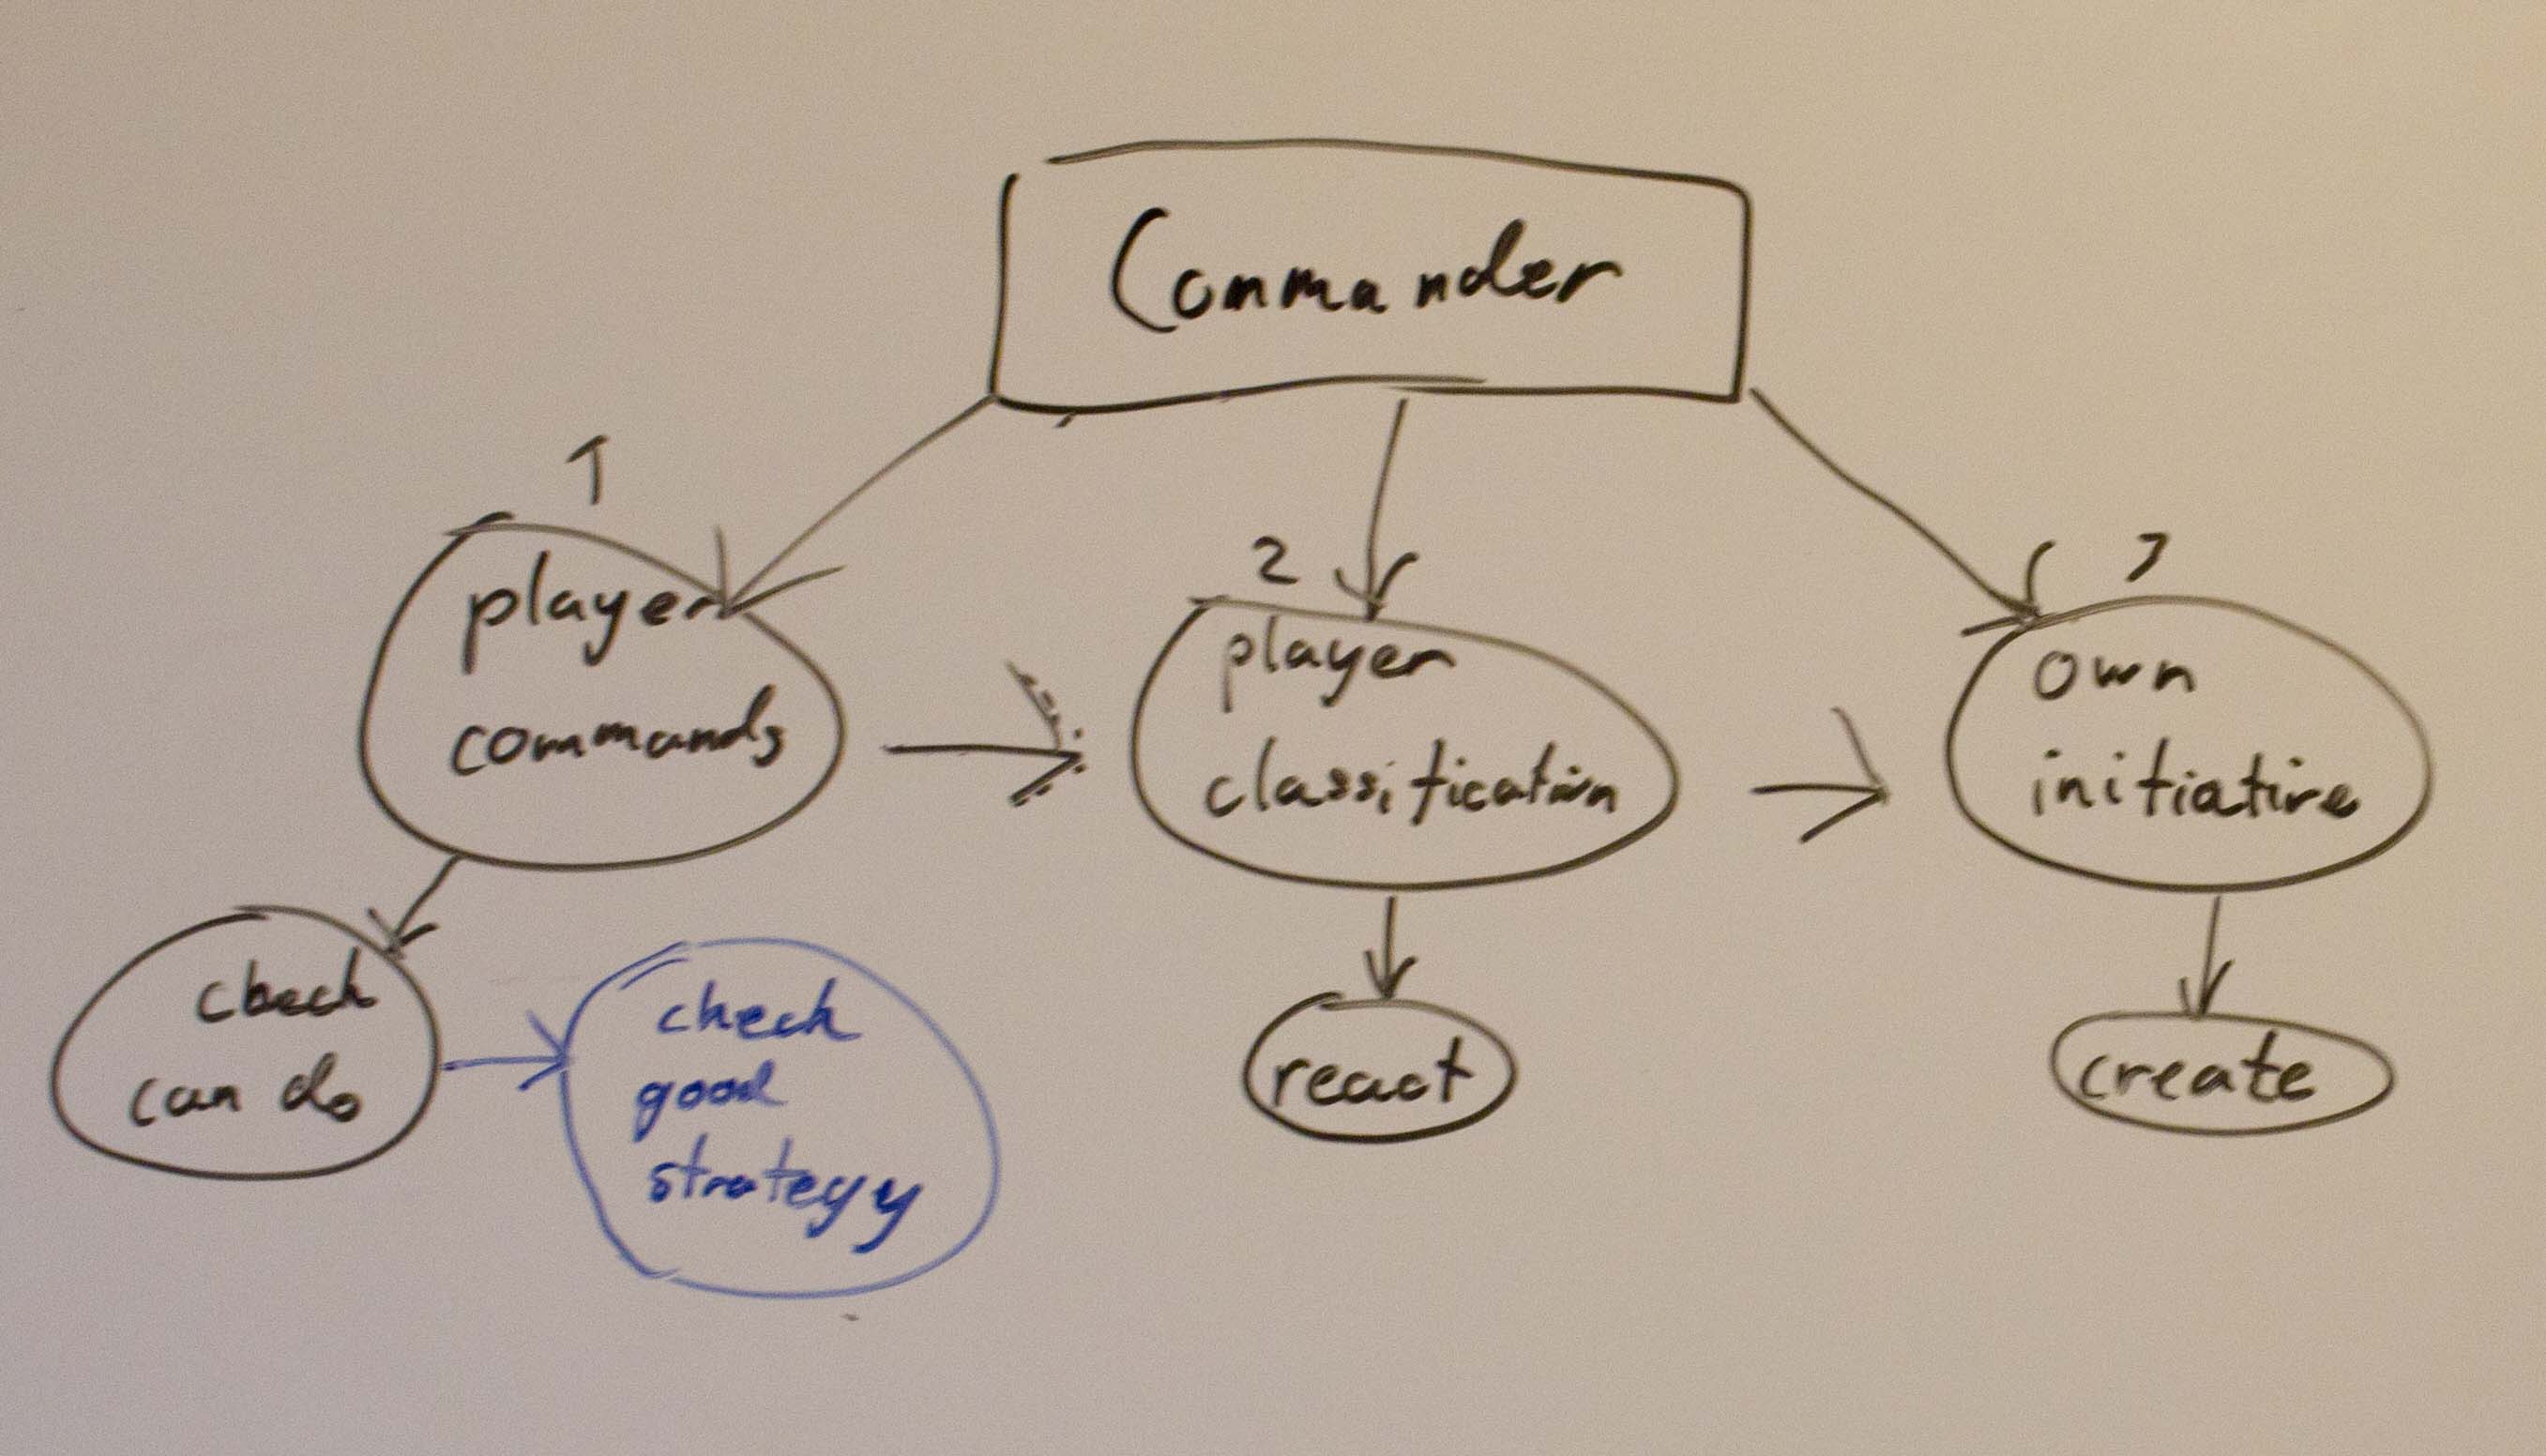 Commander
1
player
commands
2
player
classification
3
own
initiative
check
can do
check
good
strategy
react
create